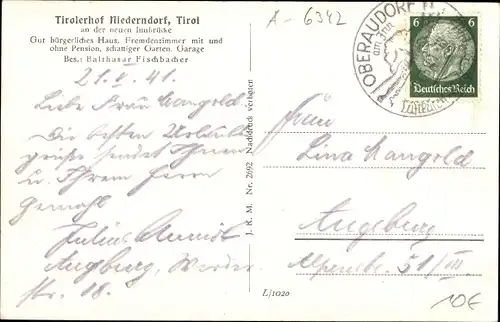 Tirolerhof Niederndorf, Tirol
an der neuen Innbrücke
Gut bürgerliches Haus, Fremdenzimmer mit und
ohne Pension, schattiger Garten, Garage
Bes.: Balthasar Fischbacher
21.V.41.
Liebe Frau Mangold
Die besten Urlaubs
grüße sendet Ihnen
u. Ihrem Herrn
Gemahl
Julius
Augsburg,
Str. 18.
J. K. M. Nr. 2692 Nachdruck verboten
L/1020
A-6342
OBERAUDORF
am Inn
6 6
Deutsches Reich
Frau
Lina Mangold
Augsburg
51/III
10€